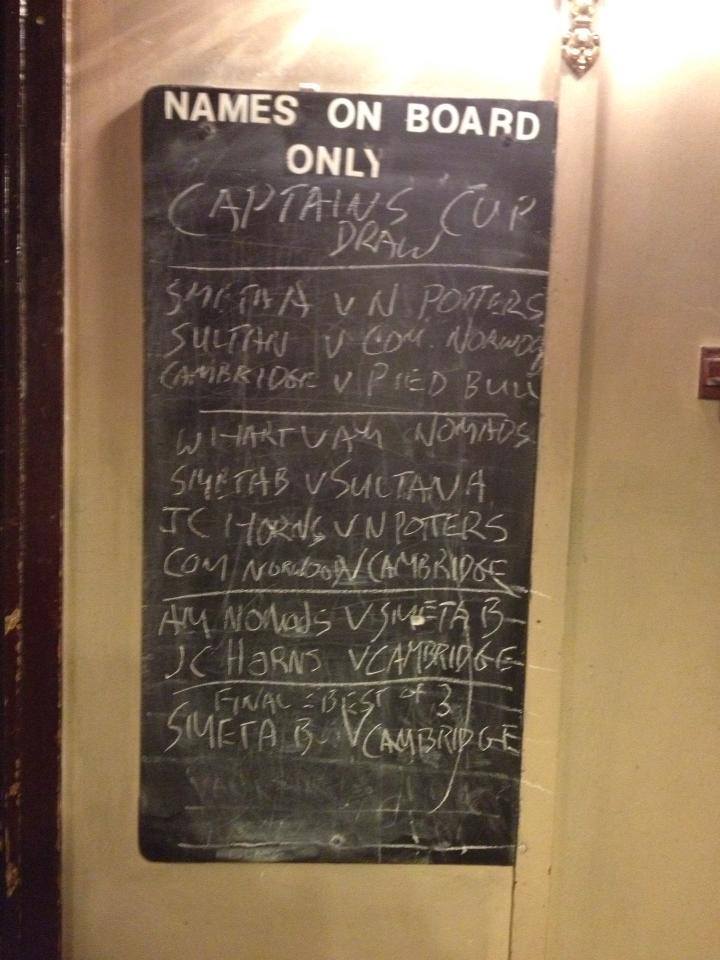 NAMES ON BOARD
ONLY
CAPTAINS CUP
DRAW
SMETA A V N POTTERS
SULTAN V COM. NORWOOD
CAMBRIDGE V PIED BULL
W HART V AM NOMADS
SMETA B V SULTAN A
JC HORNS V N POTTERS
COM NORWOOD V CAMBRIDGE
AM NOMADS V SMETA B
JC HORNS V CAMBRIDGE
FINAL BEST OF 3
SMETA B V CAMBRIDGE